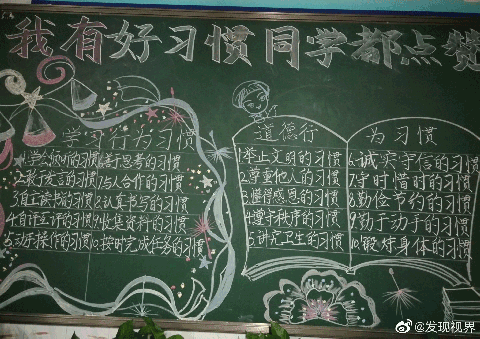 我有好习惯同学都点赞
学习行为习惯
1.学会倾听的习惯 6.善于思考的习惯
2.敢于发言的习惯 7.与人合作的习惯
3.自主读书的习惯 8.认真书写的习惯
4.自评互评的习惯 9.收集资料的习惯
5.动手操作的习惯 10.按时完成任务的习惯
道德行为习惯
1.举止文明的习惯
2.尊重他人的习惯
3.懂得感恩的习惯
4.遵守秩序的习惯
5.讲究卫生的习惯
6.诚实守信的习惯
7.守时惜时的习惯
8.勤俭节约的习惯
9.勤于动手的习惯
10.锻炼身体的习惯
@发现视界